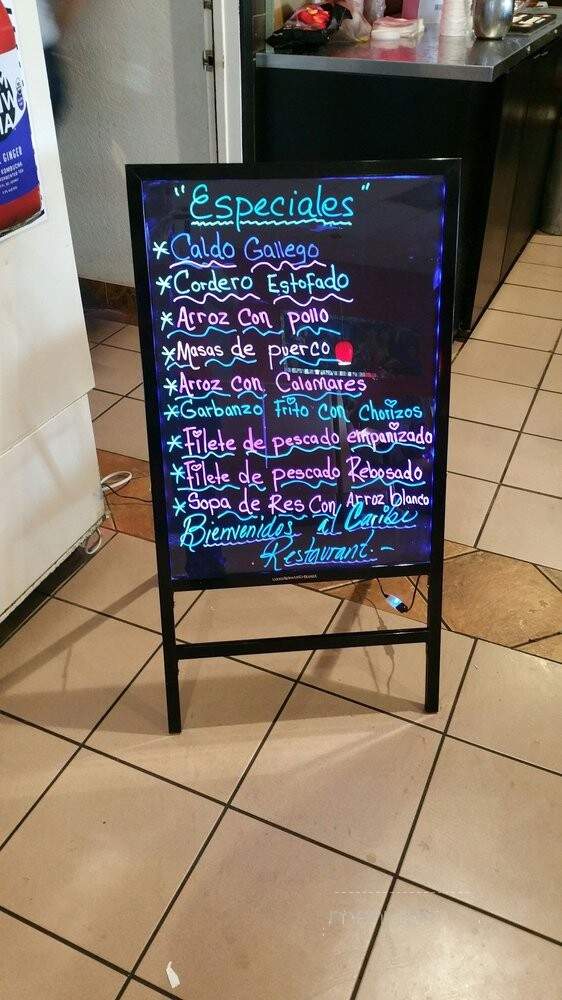 GINGER
KOMBUCHA
"Especiales"
* Caldo Gallego
* Cordero Estofado
* Arroz Con pollo
* Masas de puerco
* Arroz con Calamares
* Garbanzo Frito con Chorizos
* Filete de pescado empanizado
* Filete de pescado Rebosado
* Sopa de Res Con Arroz blanco
Bienvenidos al Caribe
Restaurant.-